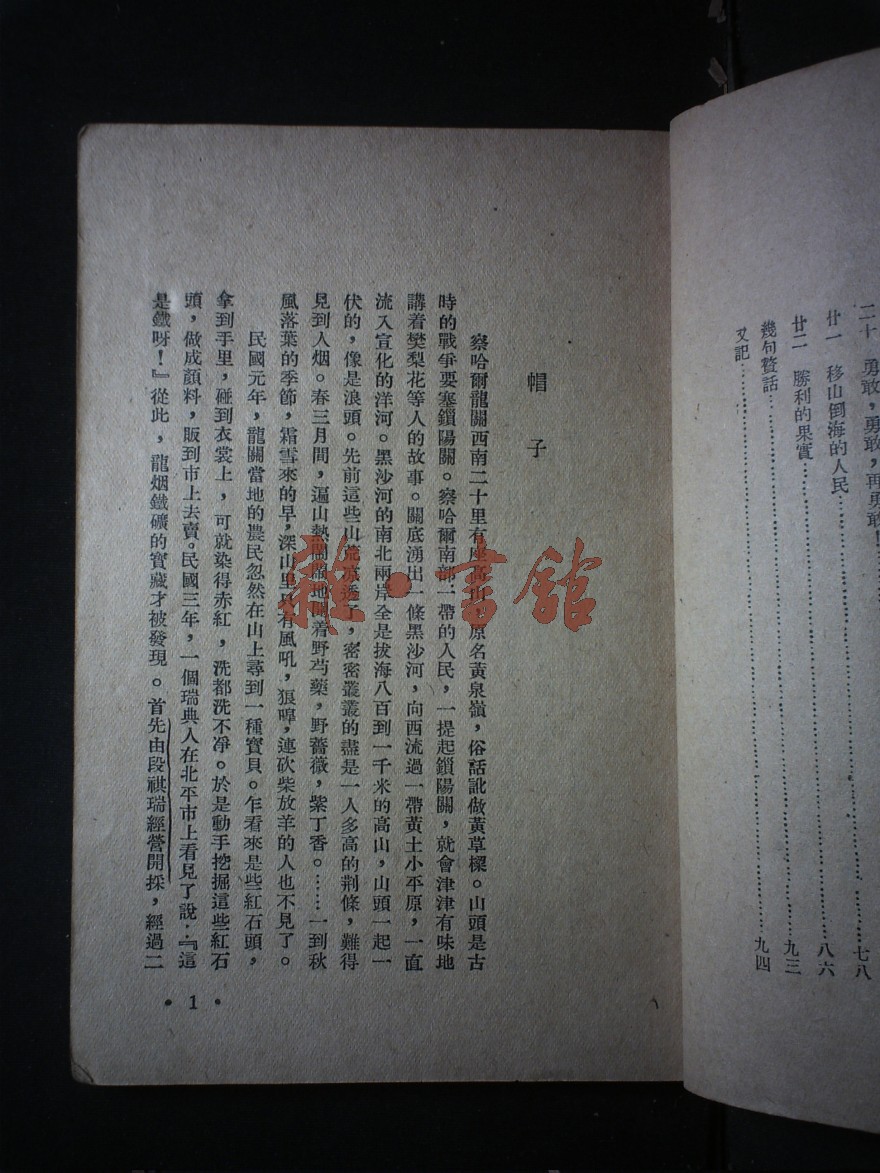 二十　勇敢，勇敢，再勇敢！……七八
廿一　移山倒海的人民……八六
廿二　勝利的果實……九三
幾句贅話……
又記……九四
帽子
察哈爾龍關西南二十里有座高山，原名黃泉嶺，俗話訛做黃草樑。山頭是古
時的戰爭要塞鎖陽關。察哈爾南部一帶的人民，一提起鎖陽關，就會津津有味地
講着樊梨花等人的故事。關底湧出一條黑沙河，向西流過一帶黃土小平原，一直
流入宣化的洋河。黑沙河的南北兩岸全是拔海八百到一千米的高山，山頭一起一
伏的，像是浪頭。先前這些山荒涼透了，密密叢叢的盡是一人多高的荆條，難得
見到人烟。春三月間，遍山熱鬧鬧地開着野芍藥，野薔薇，紫丁香。……一到秋
風落葉的季節，霜雪來的早，深山里只有風吼，狼嘷，連砍柴放羊的人也不見了。
民國元年，龍關當地的農民忽然在山上尋到一種寶貝。乍看來是些紅石頭，
拿到手里，碰到衣裳上，可就染得赤紅，洗都洗不凈。於是動手挖掘這些紅石
頭，做成顏料，販到市上去賣。民國三年，一個瑞典人在北平市上看見了說：『這
是鐵呀！』從此，龍烟鐵礦的寶藏才被發現。首先由段祺瑞經營開採，經過二
• 1 •
雜·書館